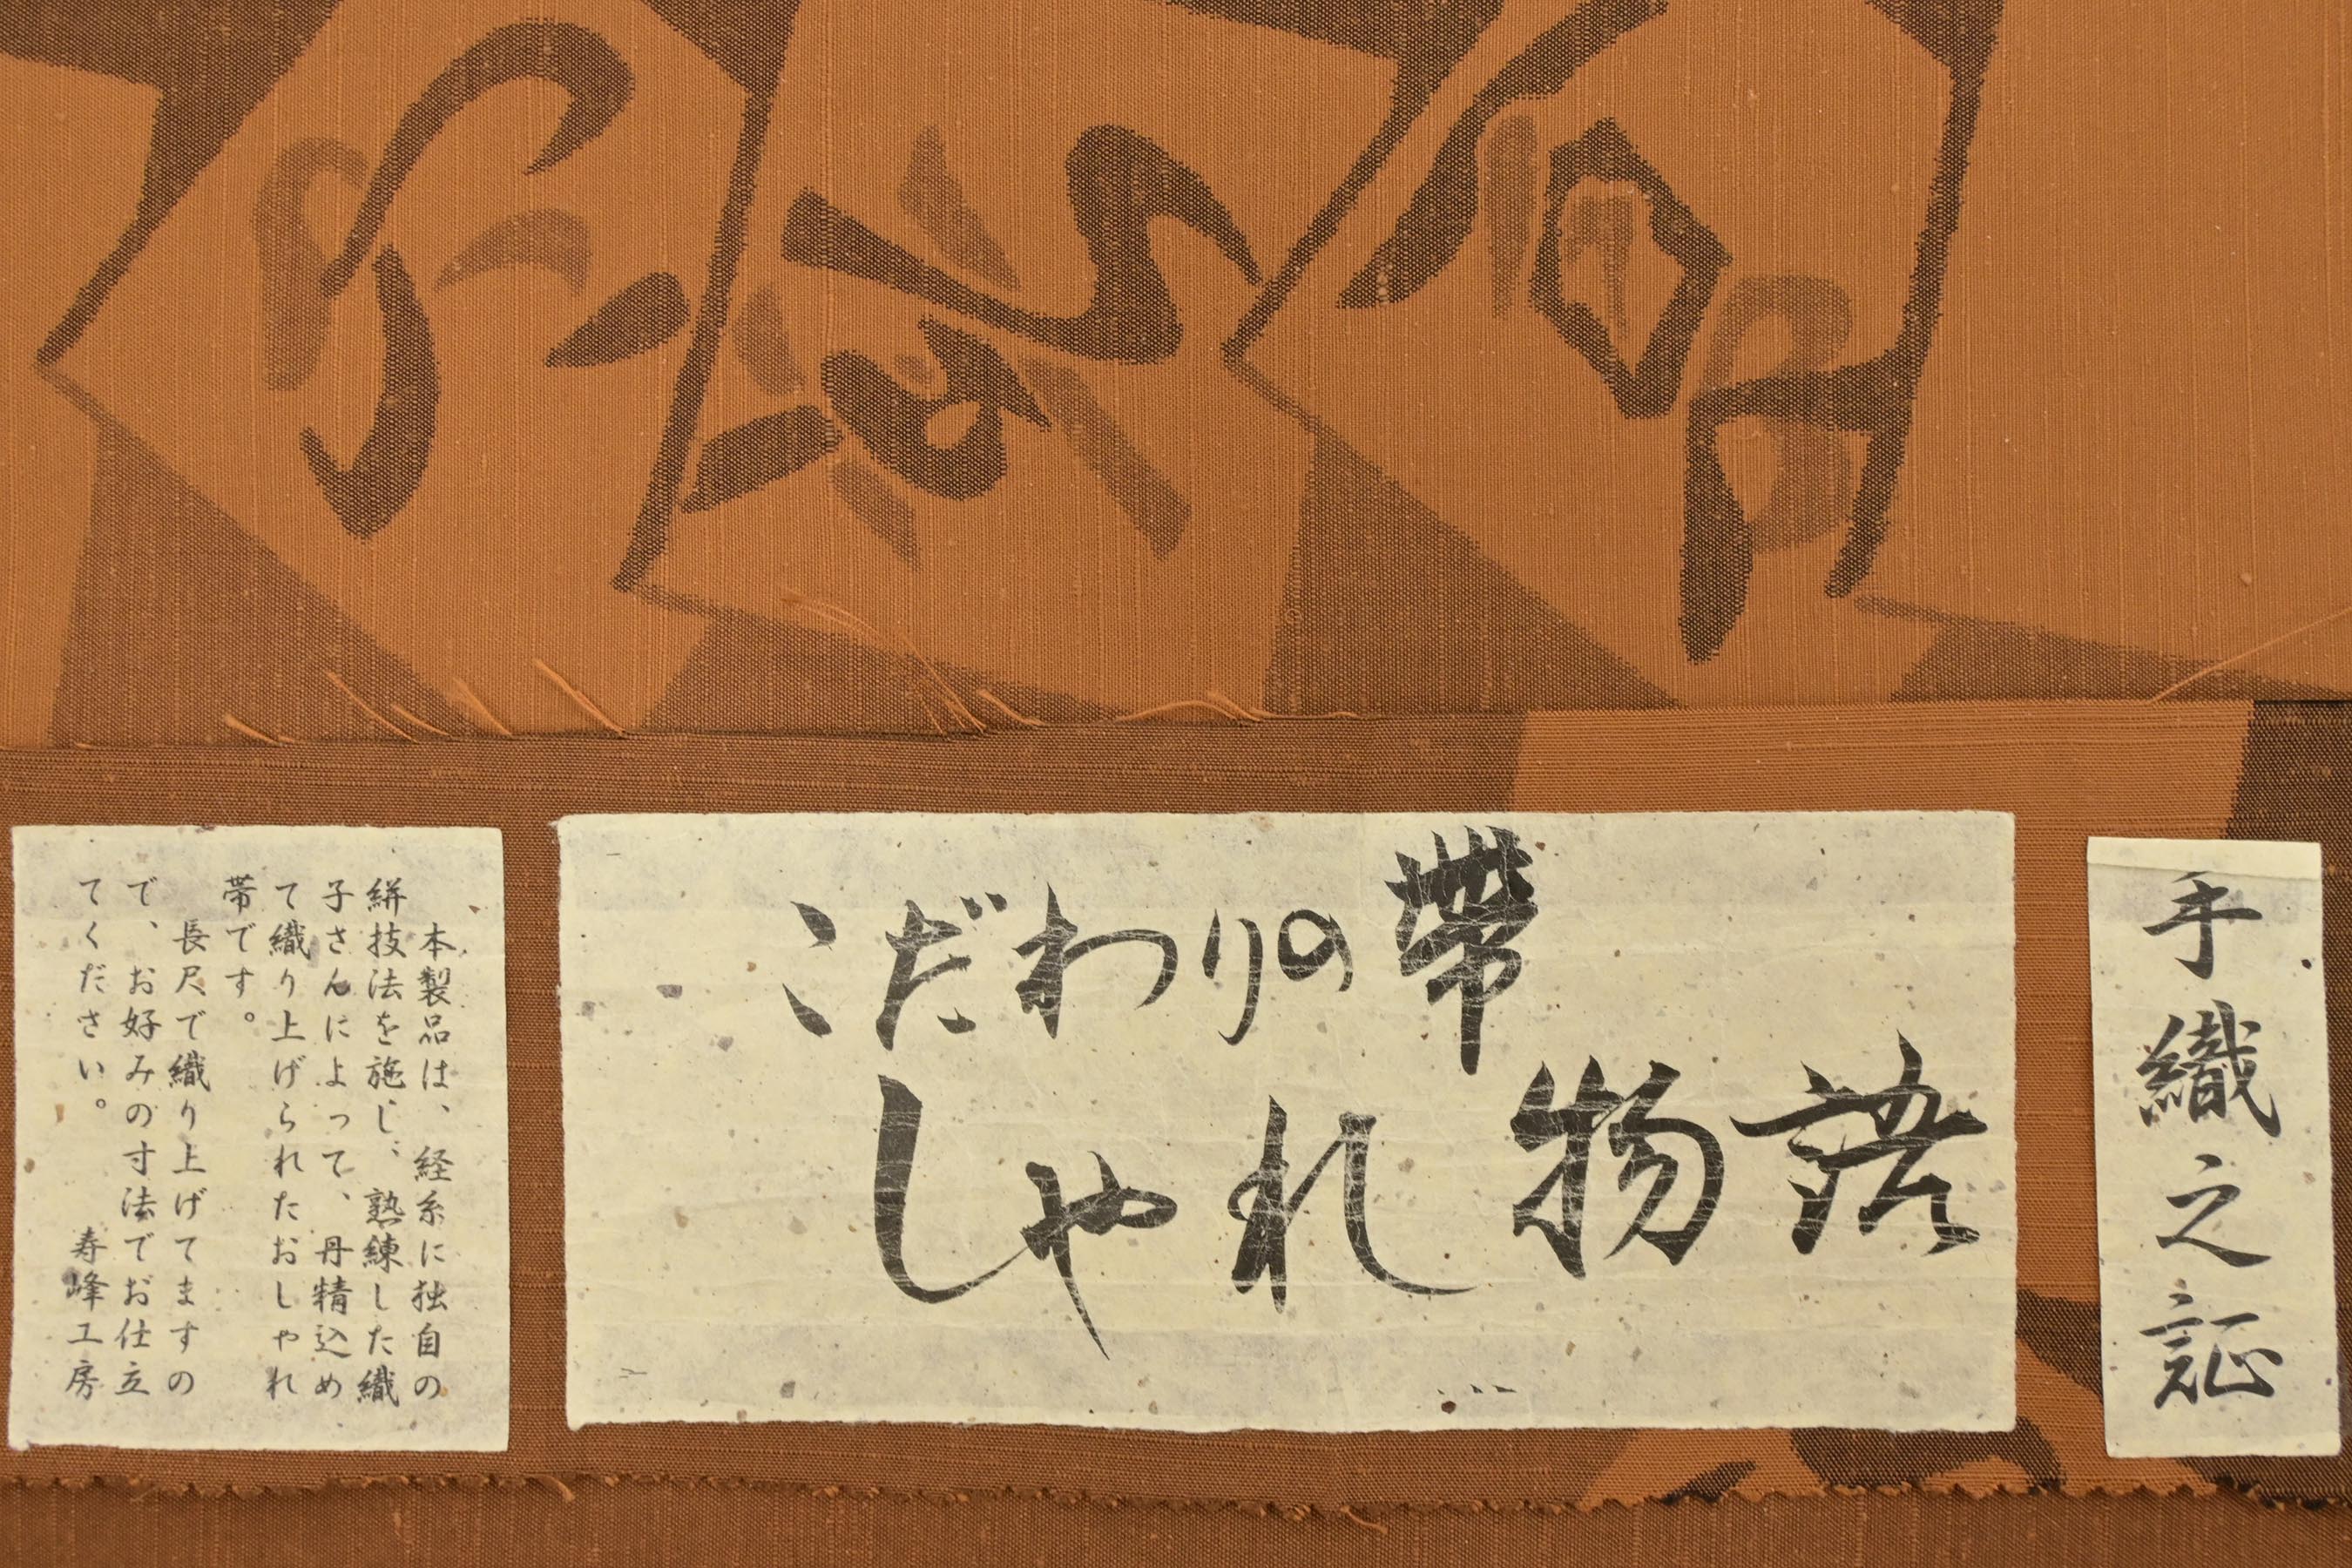 手織之証
こだわりの帶
しゃれ物語
本製品は、経糸に独自の
絣技法を施し、熟練した織
子さんによって、丹精込め
て織り上げられたおしゃれ
帯です。
長尺で織り上げてますの
で、お好みの寸法でお仕立
てください。
寿峰工房